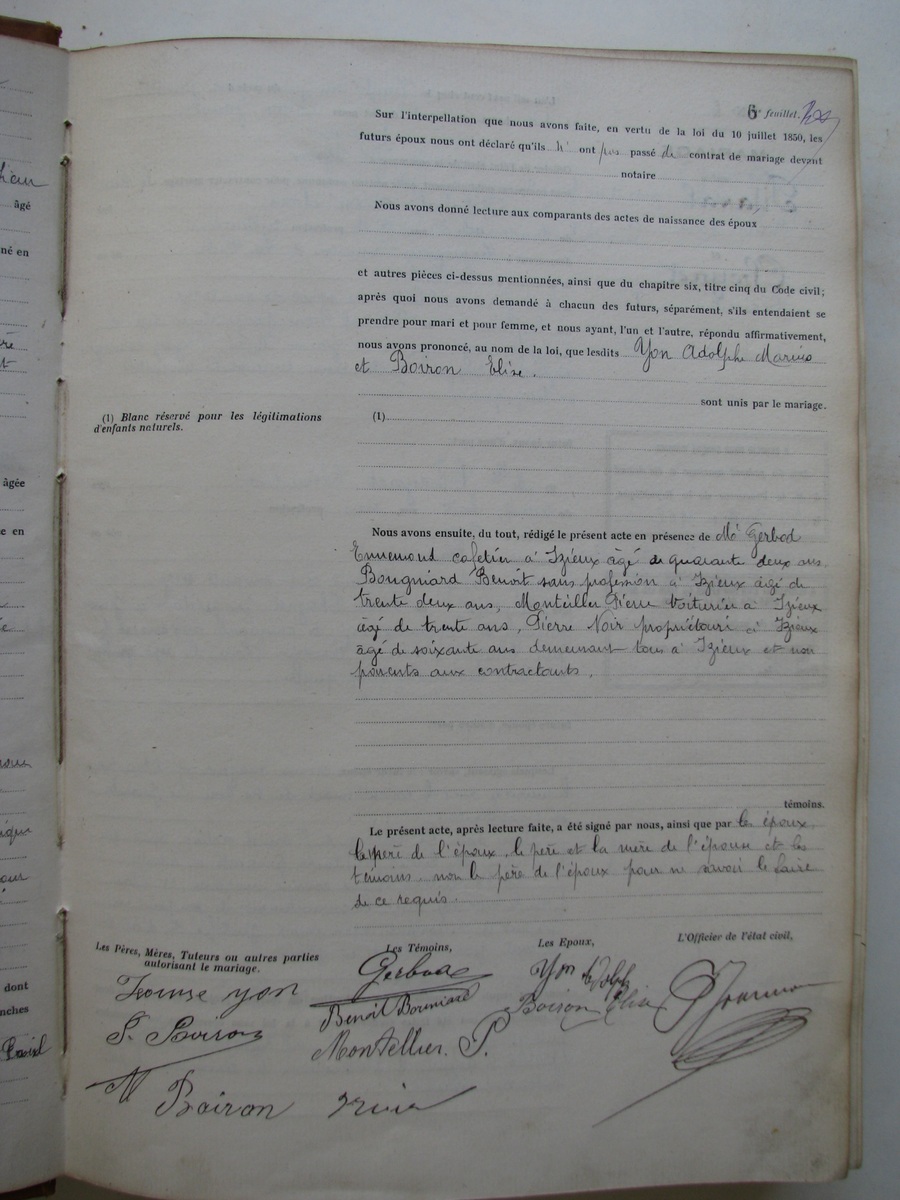 6e feuillet.
Sur l'interpellation que nous avons faite, en vertu de la loi du 10 juillet 1850, les
futurs époux nous ont déclaré qu'ils n' ont pas passé de contrat de mariage devant
notaire
Nous avons donné lecture aux comparants des actes de naissance des époux
et autres pièces ci-dessus mentionnées, ainsi que du chapitre six, titre cinq du Code civil;
après quoi nous avons demandé à chacun des futurs, séparément, s'ils entendaient se
prendre pour mari et pour femme, et nous ayant, l'un et l'autre, répondu affirmativement,
nous avons prononcé, au nom de la loi, que lesdits Yon Adolphe Marius
et Boiron Elise.
sont unis par le mariage.
(1) Blanc réservé pour les légitimations
d'enfants naturels.
(1)
Nous avons ensuite, du tout, rédigé le présent acte en présence de Gerbod
Ennemond cafetier à Izieux âgé de quarante deux ans
Benoit sans profession à Izieux âgé de
trente deux ans, Monteiller Pierre voiturier à Izieux
âgé de trente ans, Pierre Noir propriétaire à Izieux
âgé de soixante ans demeurant tous à Izieux et non
parents aux contractants,
témoins.
Le présent acte, après lecture faite, a été signé par nous, ainsi que par les époux,
la mère de l'époux, le père et la mère de l'épouse et les
témoins, non le père de l'époux pour ne savoir le faire
de ce requis.
Les Pères, Mères, Tuteurs ou autres parties
autorisant le mariage.
Les Témoins,
Les Epoux,
L'Officier de l'état civil,
yon
Boiron
Boiron
Gerbod
Benoit
Montellier. P.
Yon Adolphe
Boiron Elisa
âgé
né en
âgée
e en
dont
nches